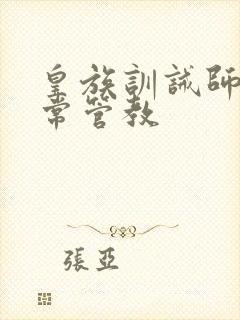 皇族訓誡師
常管教
張亞